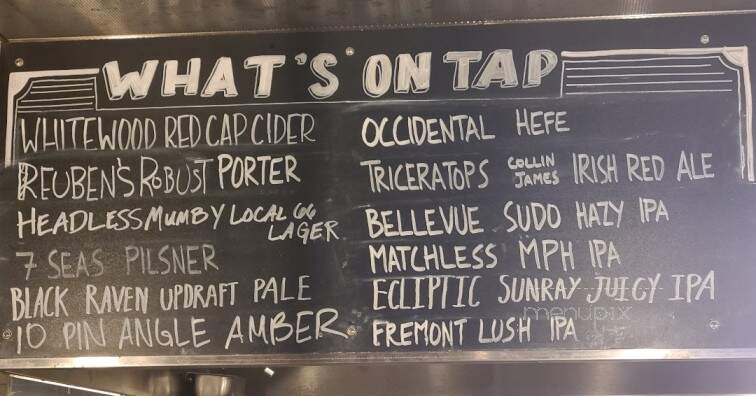 WHAT'S ON TAP
WHITEWOOD RED CAP CIDER
REUBEN'S ROBUST PORTER
HEADLESS MUMBY LOCAL 66
LAGER
7 SEAS PILSNER
BLACK RAVEN UPDRAFT PALE
10 PIN ANGLE AMBER
OCCIDENTAL HEFE
TRICERATOPS COLLIN JAMES IRISH RED ALE
BELLEVUE SUDO HAZY IPA
MATCHLESS MPH IPA
ECLIPTIC SUNRAY JUICY IPA
FREMONT LUSH IPA
menupix